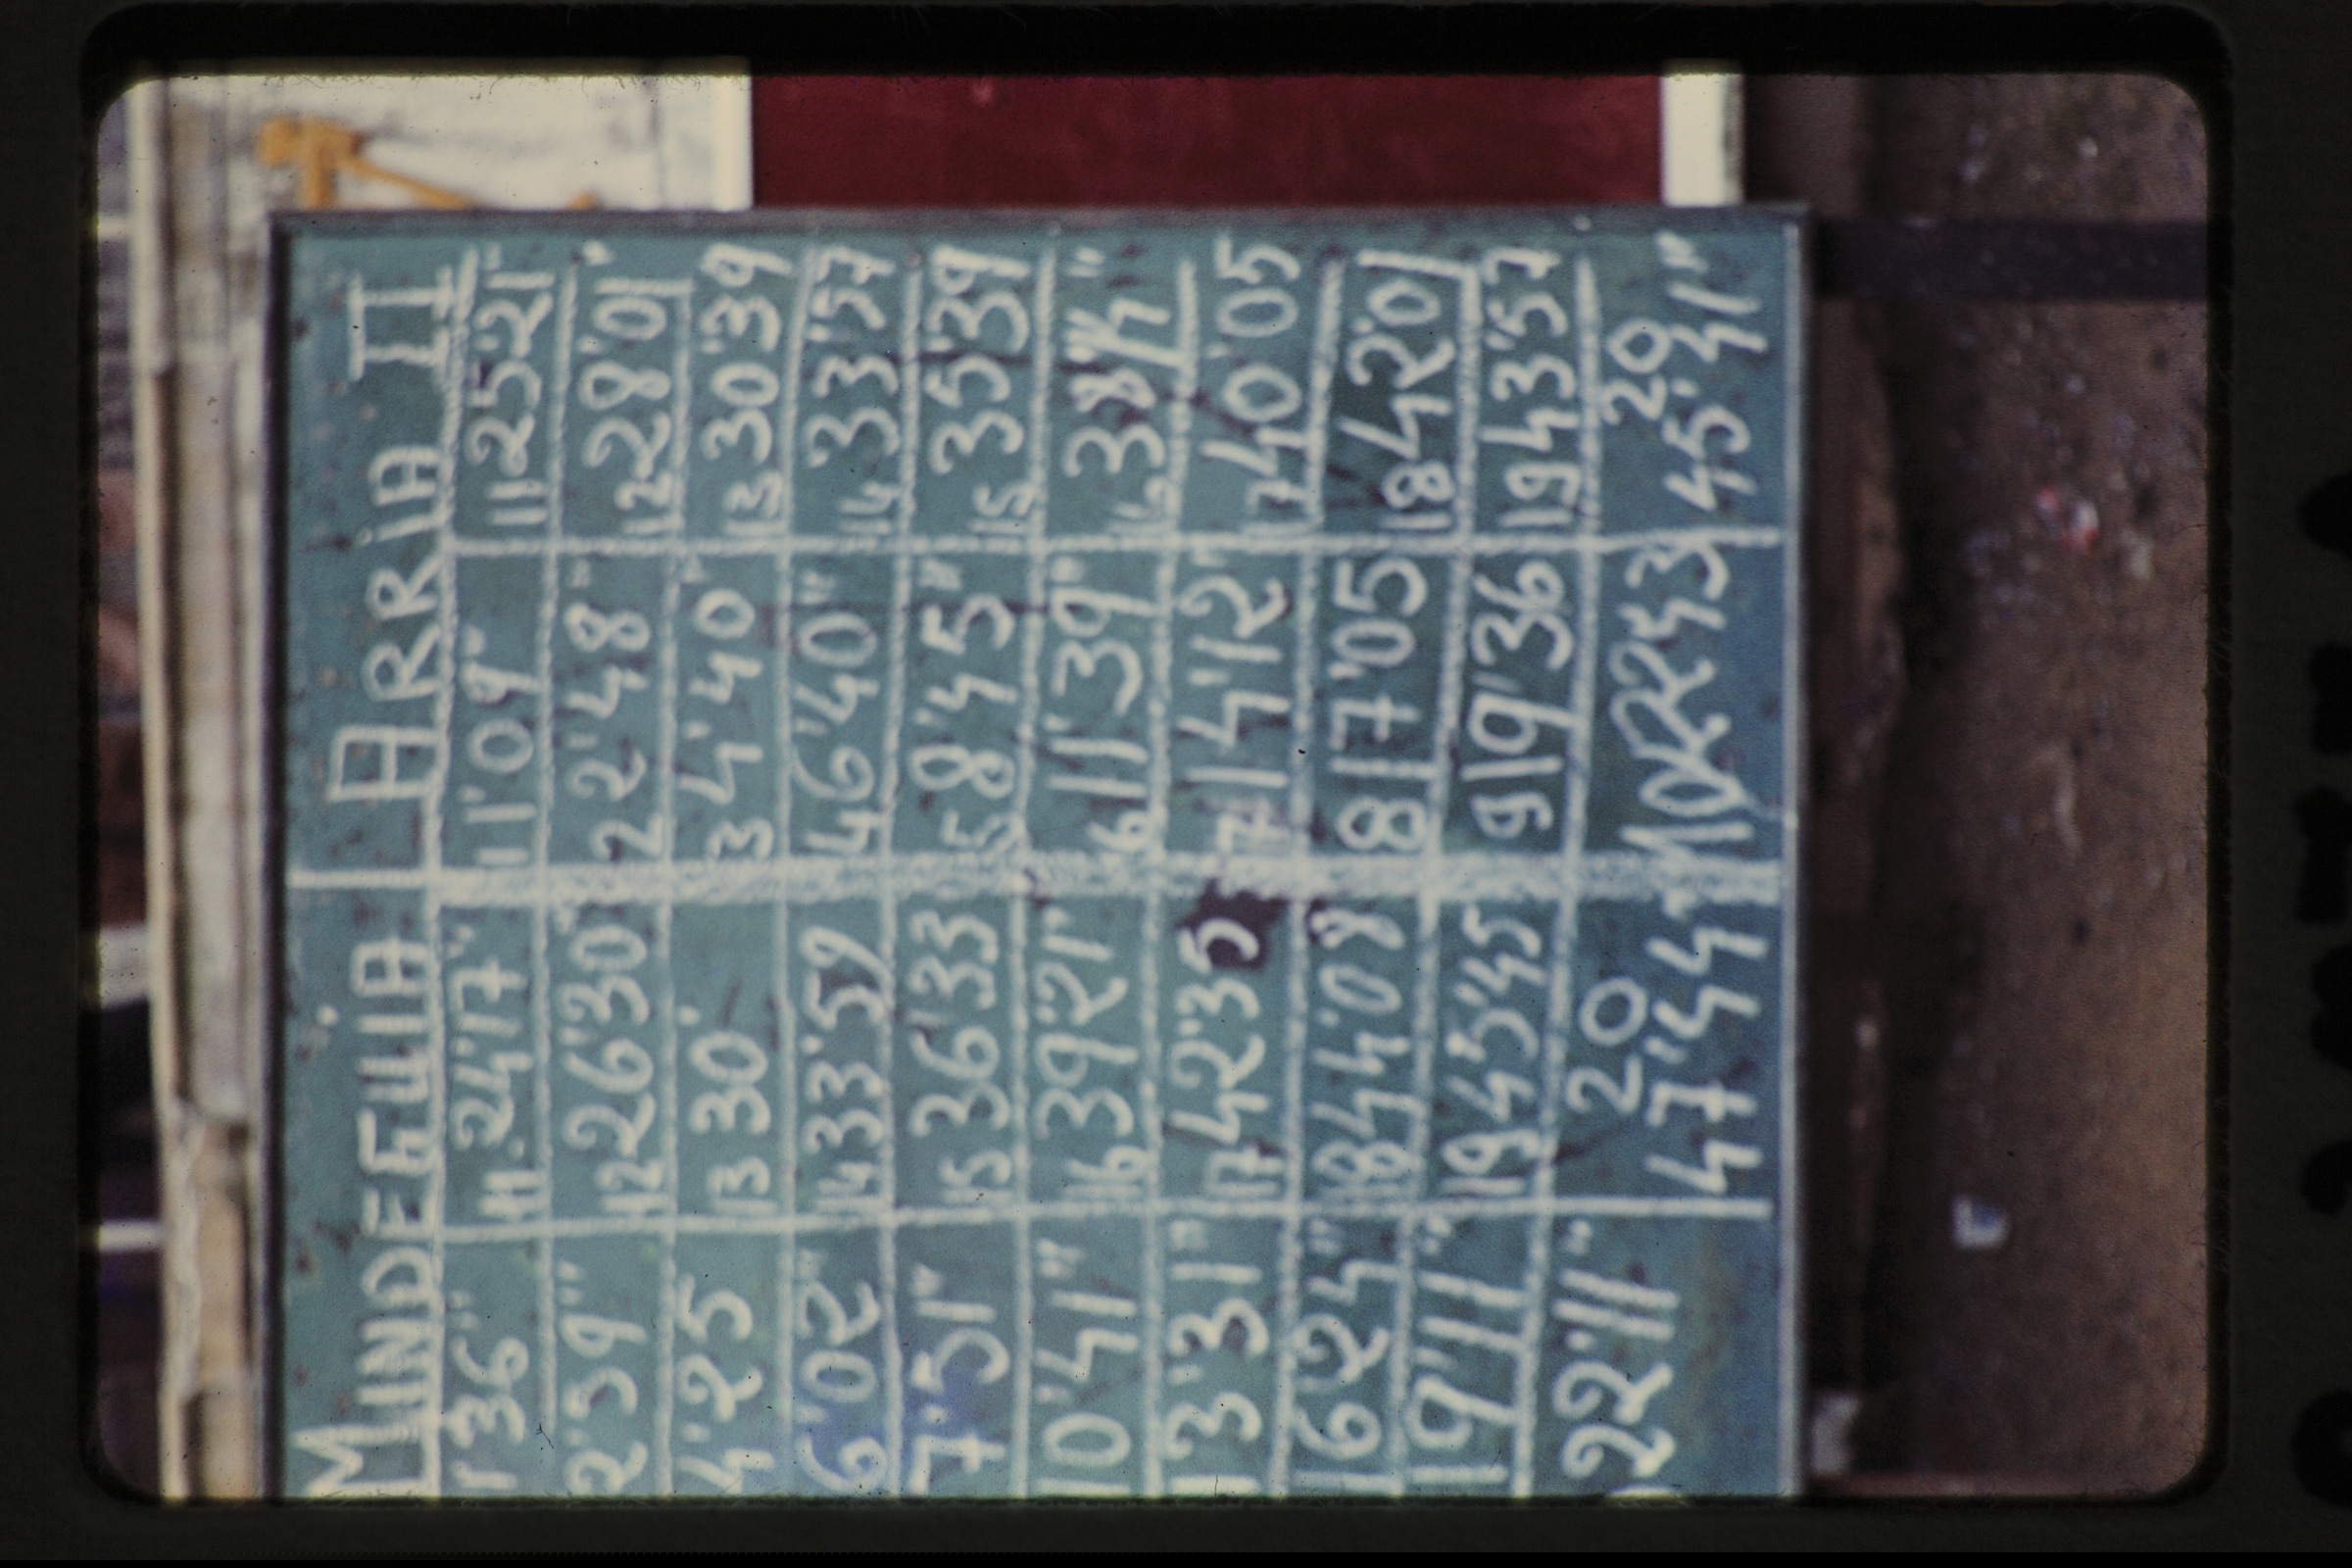 MINDEGUIA ARRIA II
1'36" 11 24'17" 1 1'09" 11 25'21"
2'39" 12 26'30" 2 2'48" 12 28'01"
4'25 13 30' 3 4'40" 13 30'39
6'02" 14 33'59 4 6'40" 14 33'57
7'51" 15 36'33 5 8'45" 15 35'39
10'41" 16 39'21" 6 11'39" 16
13'31" 17 42'35 7 14'12" 17 40'05
16'24" 18 44'08 8 17'05 18 42'01
19'11" 19 45'45 9 19'36 19 43'57
22'11" 20 47'44 10 22 43 20 45'41"